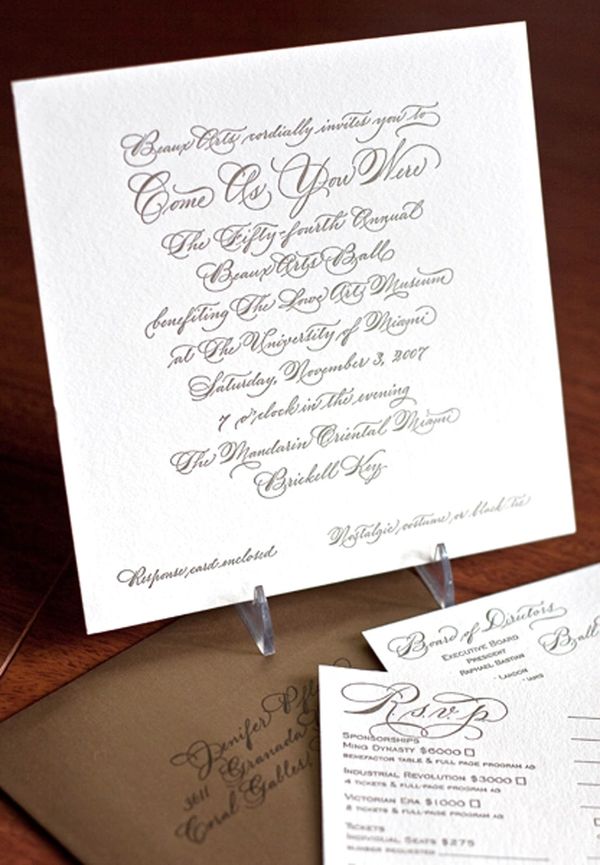 Beaux Arts cordially invites you to
Come As You Were
The Fifty-fourth Annual
Beaux Arts Ball
benefiting The Lowe Arts Museum
at The University of Miami
Saturday, November 3, 2007
7 o'clock in the evening
The Mandarin Oriental Miami
Brickell Key
Nostalgic, costume, or black tie
Response card enclosed
Board of Directors
Executive Board
President
Raphael Bastian
Ball
Jenifer
3611 Granada
Coral Gables,
R.s.v.p
Sponsorships
Ming Dynasty $6000
benefactor table & full page program ad
Industrial Revolution $3000
4 tickets & full-page program ad
Victorian Era $1000
2 tickets & full-page program ad
Tickets
Individual Seats $275
number requested